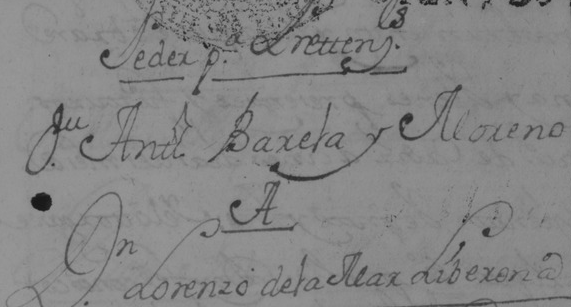 Poder p.a
Ju Antt Barela y Moreno
A
Dn
Lorenzo dela Mar Liberona